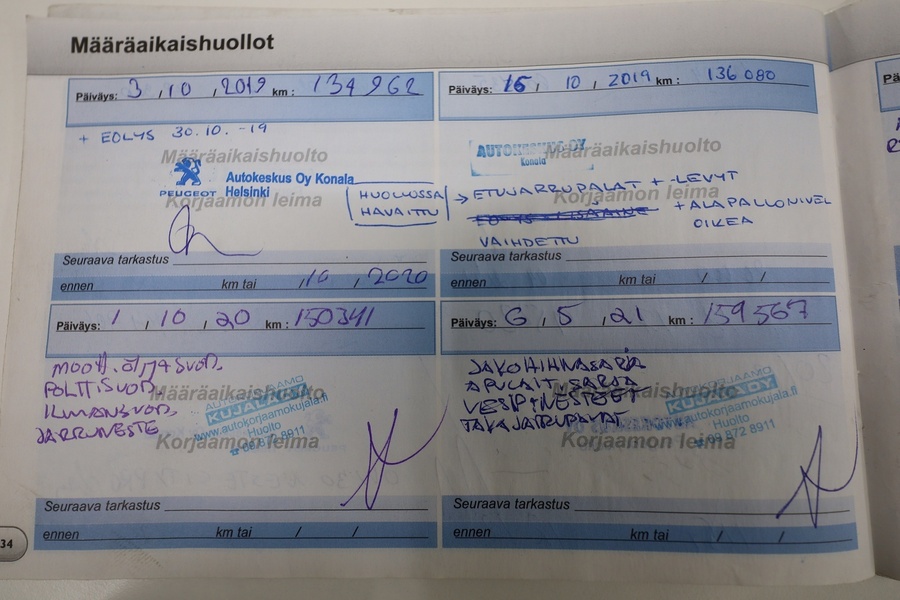 Määräaikaishuollot
Päiväys: 3 , 10 , 2019 km : 134 962
+ EOLYS 30.10.-19
Määräaikaishuolto
PEUGEOT
Autokeskus Oy Konala
Helsinki
Korjaamon leima
HUOLLOSSA
HAVAITTU
Seuraava tarkastus
ennen km tai , 10 , 2020
Päiväys: 15 , 10 , 2019 km : 136 080
AUTOKESKUS OY
Konala
Määräaikaishuolto
→ ETUJARRUPALAT + -LEVYT
Korjaamon leima
+ ALAPALLONIVEL
OIKEA
VAIHDETTU
Seuraava tarkastus
ennen km tai / /
Päiväys: 1 , 10 , 20 km : 150341
MOOT. ÖLJY+SUOD.
POLTT.SUOD.
ILMANSUOD.
JARRUNESTE
Määräaikaishuolto
AUTOKORJAAMO
KUJALA OY
www.autokorjaamokujala.fi
Huolto
☎ 09 872 8911
Korjaamon leima
Seuraava tarkastus
ennen km tai / /
Päiväys: 6 , 5 , 21 km : 159567
JAKOHIHNASARJA
APULAITESARJA
VESIP. NESTEET
TAKAJARRUPALAT
Määräaikaishuolto
KUJALA OY
www.autokorjaamokujala.fi
Huolto
☎ 09 872 8911
Korjaamon leima
Seuraava tarkastus
ennen km tai / /
34